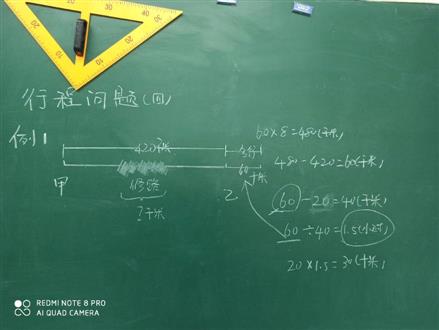 行程问题(四)
例1
420千米
多行
60
千米
甲
乙
修路
?千米
60×8=480(千米)
480-420=60(千米)
60-20=40(千米)
60÷40=1.5(小时)
20×1.5=30(千米)
REDMI NOTE 8 PRO
AI QUAD CAMERA